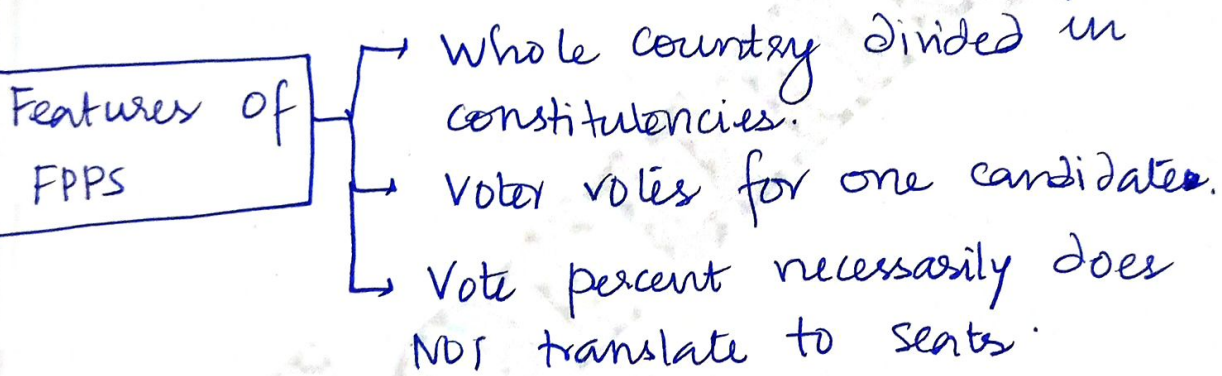 Features of
FPPS
Whole country divided in
constitulencies.
Voter votes for one candidate.
Vote percent necessarily does
NOT translate to seats.